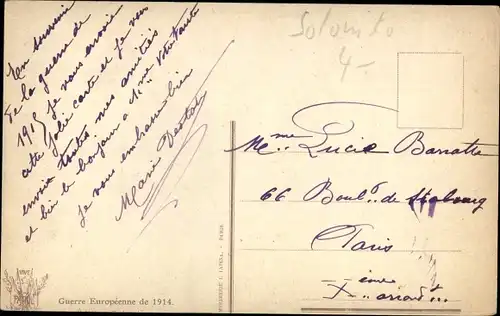 En souvenir
de la guerre de
1915 je vous envoie
cette jolie carte et je vous
envoie toutes mes amitiés
et bien le bonjour a Mme votre tante
je vous embrasse bien
Marie
Solomko
4-
Mme Lucie
66 Bould de Strasbourg
Paris
Xème arrondt
Guerre Européenne de 1914.
PARIS